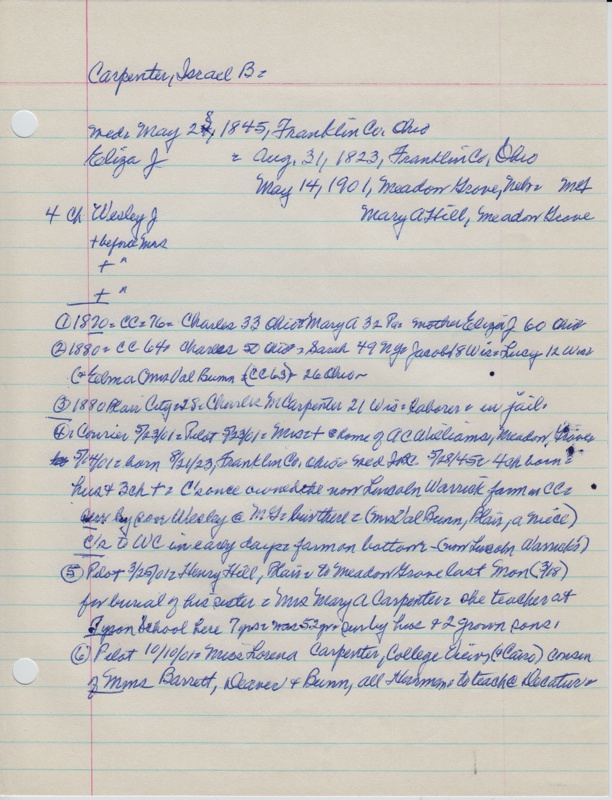 Carpenter, Israel B =
med = May 28, 1845, Franklin Co. Ohio
Eliza J = Aug. 31, 1823, Franklin Co, Ohio
May 14, 1901, Meadow Grove, Nebr =
4 ch Wesley J Mary A Hill, Meadow Grove
+ before Mrs
+ "
+ "
① 1870 = CC = 76 = Charles 33 Ohio = Mary A 32 Pa = mother Eliza J 60 Ohio
② 1880 = CC 64 = Charles 50 Ohio = Sarah 49 NY = Jacob 18 Wis = Lucy 12 Wis
(= Mrs Val Bunn (CC 63) 26 Ohio
③ 1880 Blair City = 28 = Charles M Carpenter 21 Wis = laborer = in jail.
④ = Courier 5/23/01 = Pilot 5/23/01 = Mrs + @ home of A C Williams, Meadow Grove
5/14/01 = born 8/21/23, Franklin Co. Ohio = med 5/28/45 = 4 ch born =
hus + 3 ch + = C once owned the now Lincoln Warrick farm in CC =
by son Wesley @ MG = bur there = (Mrs Val Bunn, Blair, a niece)
C/2 to WC in early days = farm on bottom - (now Lincoln Warrick's)
⑤ Pilot 3/25/01 = Henry Hill, Blair = to Meadow Grove last Mon (3/18)
for burial of his sister = Mrs Mary A Carpenter = she teacher at
Tyson School here 7 yrs = 52 yr = sur by hus + 2 grown sons.
⑥ Pilot 10/10/01 = Miss Lorena Carpenter, College View, cousin
of Mmes Barrett, Deaver + Bunn, all Herman = to teach @ Decatur =